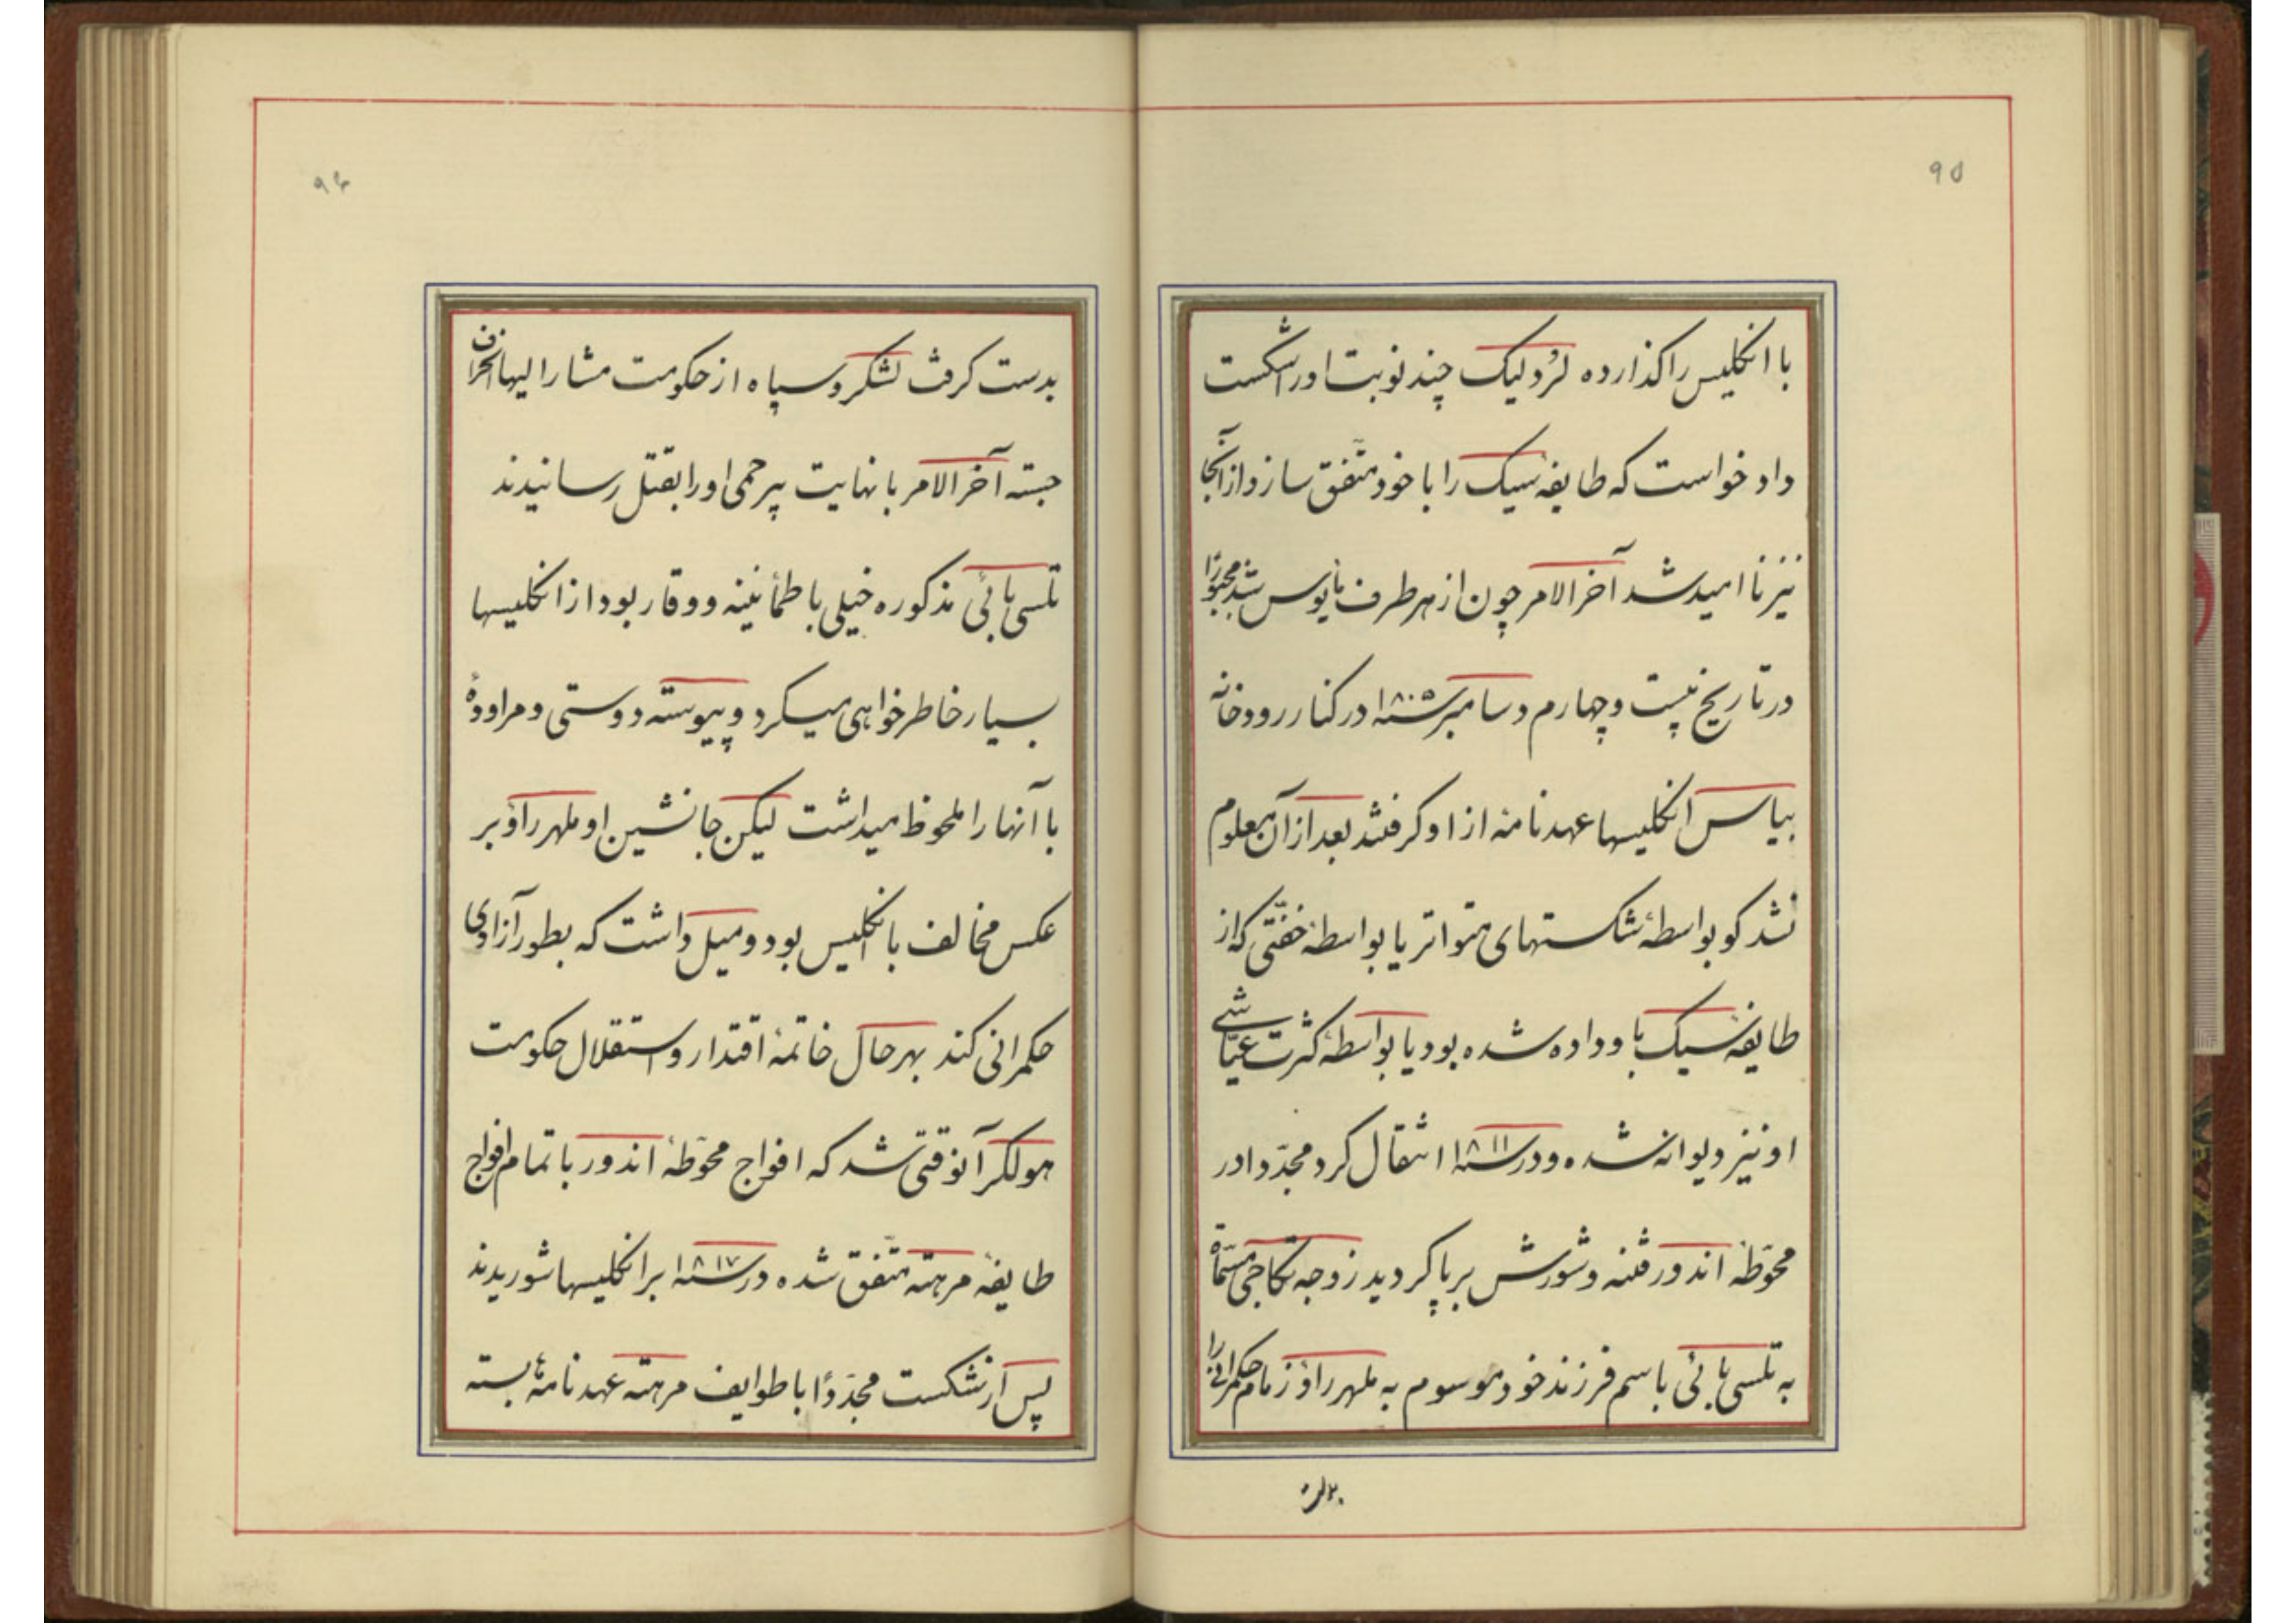 ٩٥
با انکلیس راکذارده لرُد لیک چند نوبت او را شکست
داد خواست که طایفهٔ سیک را با خود متّفق سازد از آنجا
نیز نا امید شد آخر الامر چون از هر طرف مأیوس شد مجبوراً
در تاریخ بیست و چهارم دسامبر سنه ۱۸۰۵ در کنار رودخانه
بیاس انکلیسها عهدنامهٔ از او کرفتند بعد از آن معلوم
نشد کو بواسطهٔ شکستهای متواتر یا بواسطهٔ خفّتی که از
طایفهٔ سیک باو داده شده بود یا بواسطهٔ کثرت عیّاشی
او نیز دیوانه شده و در سنه ۱۸۱۱ انتقال کرد مجدّدا در
محوّطهٔ اندور فتنه و شورش برپا کردید زوجه تکاجی مسمّاة
به تلسی بائی باسم فرزند خود موسوم به ملهر راؤ زمام حکمرانی را
بدست
٩٦
بدست کرفت لشکر و سپاه از حکومت مشار الیها انحراف
جسته آخر الامر با نهایت بیرحمی او را بقتل رسانیدند
تلسی بائی مذکوره خیلی با طمأنینه و وقار بود از انکلیسها
بسیار خاطرخواهی میکرد و پیوسته دوستی و مراودهٔ
با آنها را ملحوظ میداشت لیکن جانشین او ملهر راؤ بر
عکس مخالف با انکلیس بود و میل داشت که بطور آزادی
حکمرانی کند بهر حال خاتمهٔ اقتدار و استقلال حکومت
هولکر آنوقتی شد که افواج محوّطهٔ اندور با تمام افواج
طایفهٔ مرهته متّفق شده در سنه ۱۸۱۷ بر انکلیسها شوریدند
پس از شکست مجدّداً با طوایف مرهته عهدنامهٔ بسته